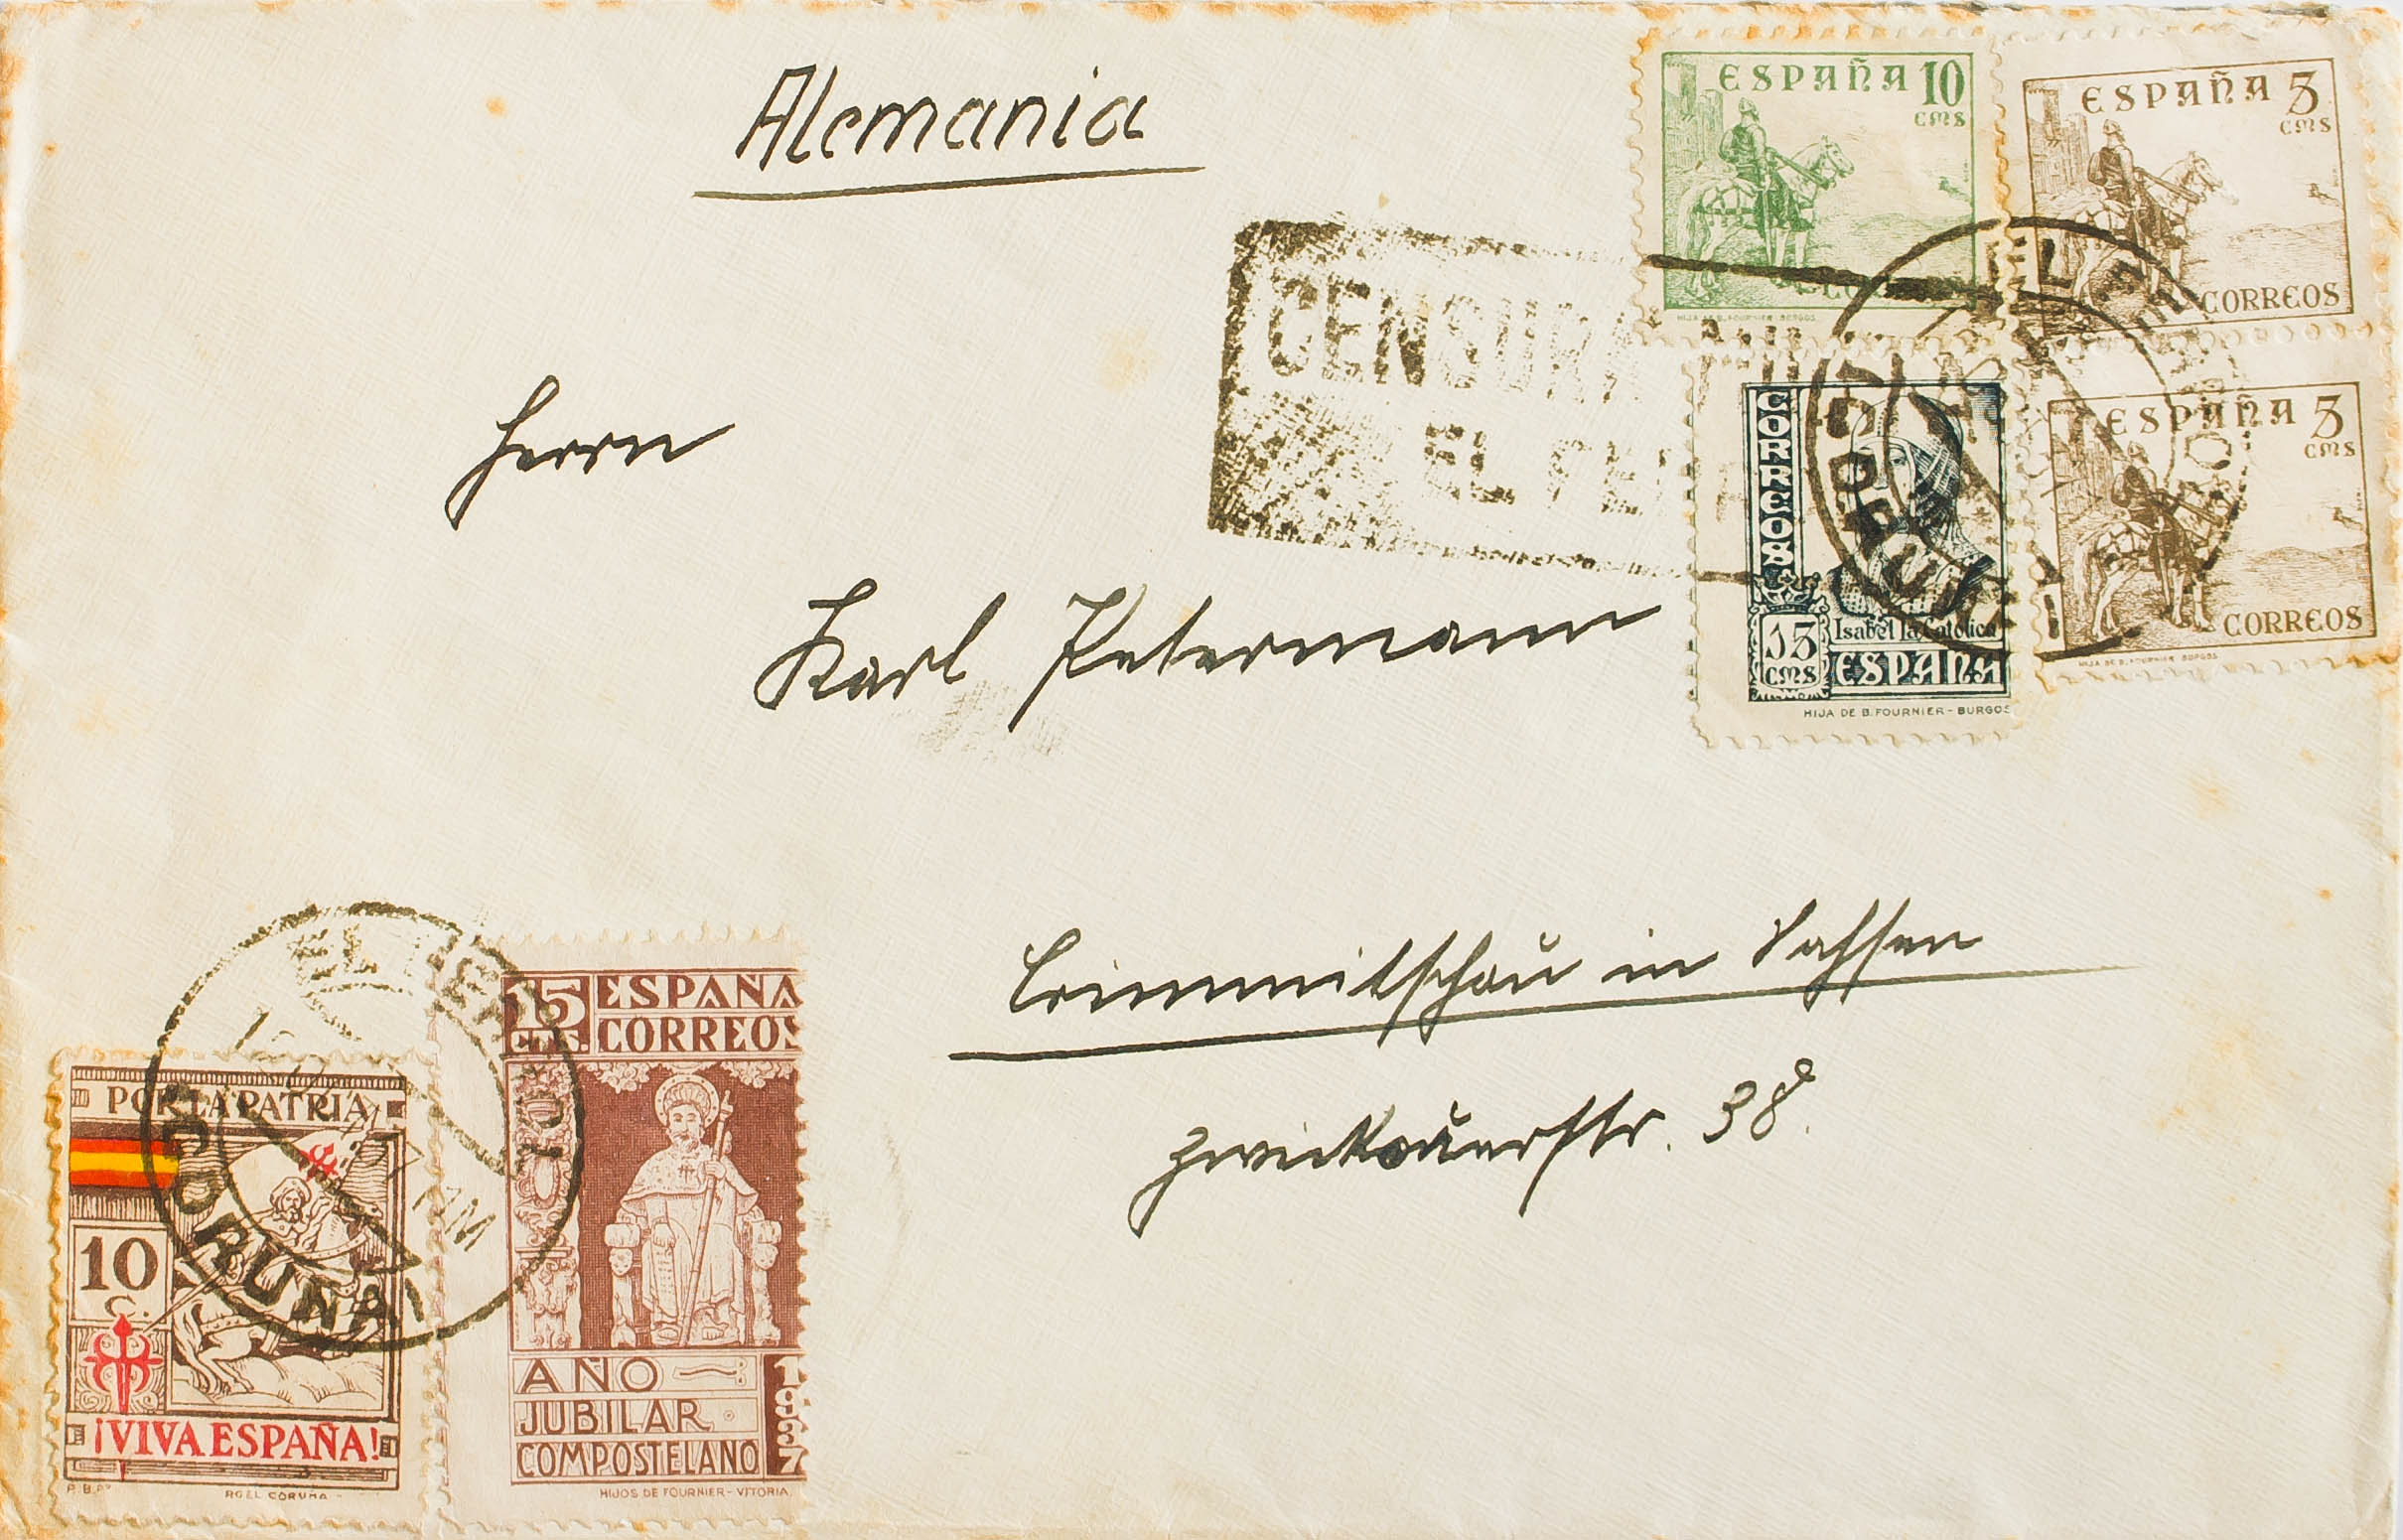 Alemania
ESPAÑA 10
CMS
HIJA DE B. FOURNIER - BURGOS
ESPAÑA 5
CMS
CORREOS
CENSURA
EL
Herrn
CORREOS
15
CMS
Isabel la Católica
ESPAÑA
HIJA DE B. FOURNIER - BURGOS
ESPAÑA 5
CMS
CORREOS
HIJA DE B. FOURNIER - BURGOS
CORUÑA
Karl Petermann
Crimmitschau in Sachsen
Zwickauerstr. 38
EL
CORUÑA
POR LA PATRIA
10
C.
¡VIVA ESPAÑA!
ROEL CORUÑA
15
CTS.
ESPAÑA
CORREOS
AÑO
JUBILAR
COMPOSTELANO
1937
HIJOS DE FOURNIER - VITORIA